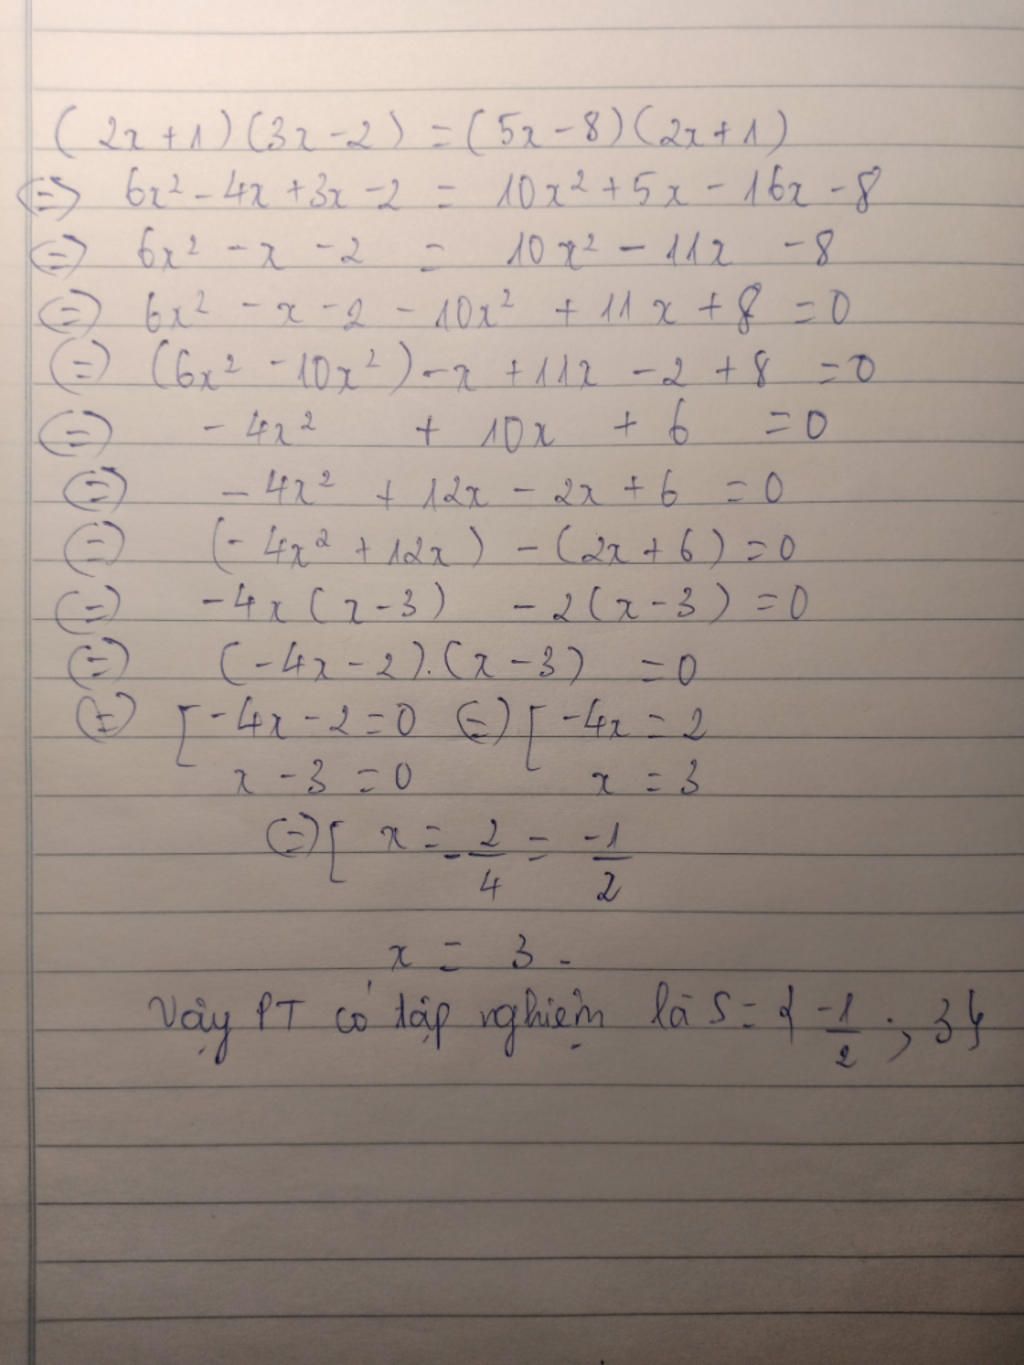 (2x+1)(3x-2) = (5x-8)(2x+1)
(=) 6x² - 4x + 3x - 2 = 10x² + 5x - 16x - 8
(=) 6x² - x - 2 = 10x² - 11x - 8
(=) 6x² - x - 2 - 10x² + 11x + 8 = 0
(=) (6x² - 10x²) - x + 11x - 2 + 8 = 0
(=) - 4x² + 10x + 6 = 0
(=) - 4x² + 12x - 2x + 6 = 0
(=) (- 4x² + 12x) - (2x + 6) = 0
(=) -4x(x-3) - 2(x-3) = 0
(=) (-4x-2).(x-3) = 0
(=) [ -4x-2=0 (=) [ -4x = 2
x - 3 = 0 x = 3
(=) [ x = -2/4 = -1/2
x = 3.
Vậy PT có tập nghiệm là S = { -1/2 ; 3}